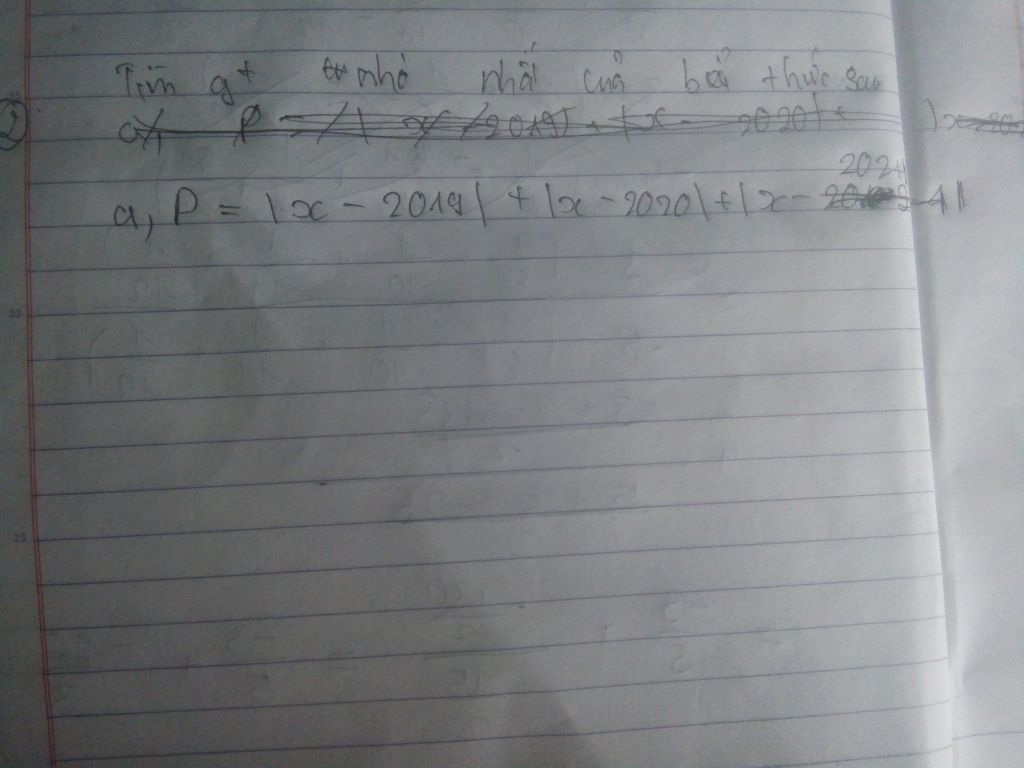 Tìm gt nhỏ nhất của bểu thức sau
2
a, P = |x - 2019| + |x - 2020| + |x - 2021|
23
25